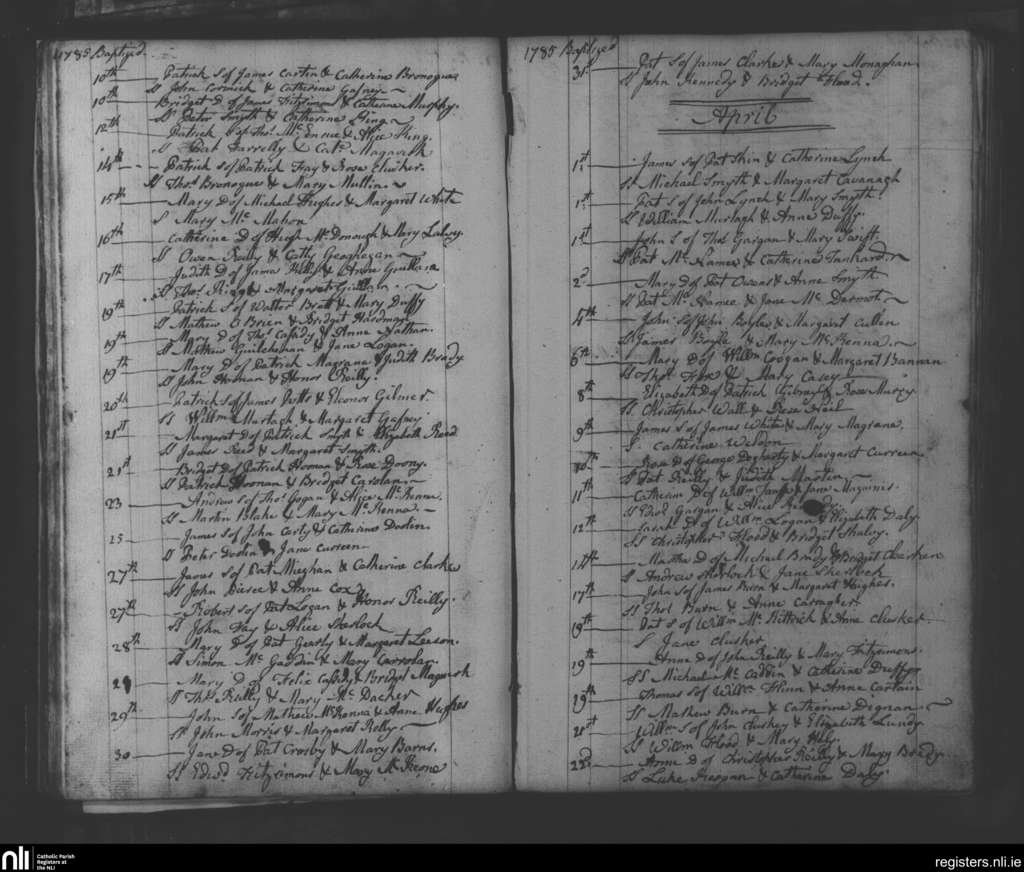 1785 Baptized
10th Patrick S of James Cartin & Catherine Bronogue
Ss John Cormick & Catherine Gafney
10th Bridget D of James Fitzsimon & Catherine Murphy.
Ss Peter Smyth & Catherine King
12th Patrick S of Thos. Mc Enrue & Alice King.
S Pat Farrelly & Cath. Magawick
14th Patrick S of Patrick Fay & Rose Clusker.
Ss Thos. Bronogue & Mary Mullin.
15th Mary D of Michael Hughes & Margaret White
S Mary Mc Mahon
16th Catherine D of Hugh Mc Donough & Mary Lalvy.
Ss Owen Reilly & Cathy Geoghegan
17th Judith D of James Hill & Anne
Ss Thos. King & Margaret
19th Patrick S of Walter Brett & Mary Duffy
Ss Mathew O Brien & Bridget Hardman
19th Mary D of Thos. Cassidy & Anne Nathan.
Ss Mathew & Jane Logan.
19th Mary D of Patrick Magrane & Judith Brady
Ss John Homan & Honor O Reilly.
20th Patrick S of James Potts & Eleonor Gilmer.
Ss Willm Murtagh & Margaret Gafney
21st Margaret D of Patrick Smyth & Elizabeth Reed
Ss James Reed & Margaret Smyth.
21st Bridget D of Patrick Homan & Rose Doony.
Ss Patrick Noonan & Bridget Carolan.
23 Andrew S of Thos. Gogan & Alice Mc Kenna.
Ss Martin Blake & Mary Mc Kenna.
25 James S of John Carly & Catherine Doolin.
Ss Peter Doolin & Jane Curreen
27th James S of Pat Mieghan & Catherine Clarke
Ss John Pierce & Anne Cox
27th Robert S of Pat Logan & Honor Reilly.
Ss John Fay & Alice Sherlock
28th Mary D of Pat Gearty & Margaret Leeson.
Ss Simon Mc Gaddin & Mary Carrolan.
29 Mary D of Felix Cassidy & Bridget Magursh
Ss Thos. Reilly & Mary Mc Dacher
29th John S of Mathew Mc Kenna & Anne Hughes
Ss John Morris & Margaret Reilly
30 Jane D of Pat Crosby & Mary Barns.
Ss Edwd Fitzsimons & Mary Mc Keone
1785 Baptized
31st Pat S of James Clarke & Mary Monaghan
Ss John Kennedy & Bridget Flood.
April
1st James S of Pat Shin & Catherine Lynch
Ss Michael Smyth & Margaret Cavanagh
1st Pat S of John Lynch & Mary Smyth.
Ss William Murtagh & Anne Duffy.
1st John S of Thos. Gargan & Mary Swift
Ss Pat Mc Namee & Catherine Tankard.
2d Mary D of Pat Owens & Anne Smyth
Ss Pat Mc Namee & Jane Mc Dermot.
4th John S of John Boylan & Margaret Cullen
Ss James Boyle & Mary Mc Kenna.
6th Mary D of Willm Coogan & Margaret Bannan
Ss Thos. Fox & Mary Casey
8th Elizabeth D of Patrick Gibney & Rose Murry
Ss Christopher Wall & Rose Neil
9th James S of James White & Mary Magrane.
S. Catherine Weldon
10th Rose D of George Dogharty & Margaret Curreen
Ss Pat Reilly & Judith Martin
11th Catherine D of Willm & Jane Maginnis.
Ss Edwd Gargan & Alice
12th Sarah D of Willm Logan & Elizabeth Daly.
Ss Christopher Flood & Bridget Shalvy.
14th Martha D of Michael Brady & Bridget Charken
Ss Andrew Sherlock & Jane Sherlock
17th John S of James Burn & Margaret Hughes.
Ss Thos. Burn & Anne Caragher.
18th Pat S of Willm Mc Kittrick & Anne Clusker.
S Jane Clusker
19th Anne D of John Reilly & Mary Fitzsimons.
Ss Michael Mc Cabbin & Catherine Duffy
19th Thomas S of Willm Flinn & Anne Cartain
Ss Mathew Burn & Catherine Degnan
21st Willm S of John Cluskey & Elizabeth Lundy
Ss Willm Flood & Mary Huly.
22d Anne D of Christopher Reilly & Mary Brady
Ss Luke Reogan & Catherine Daly
nli
Catholic Parish
Registers at
the NLI
registers.nli.ie